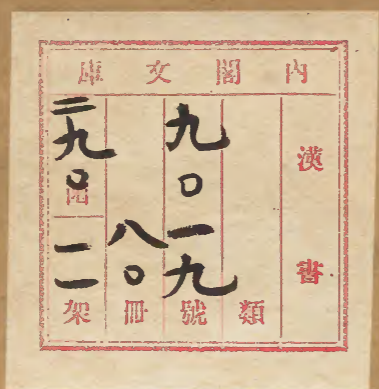 內閣文庫
漢書
類
九〇一九號
八〇冊
二九〇函
一一架